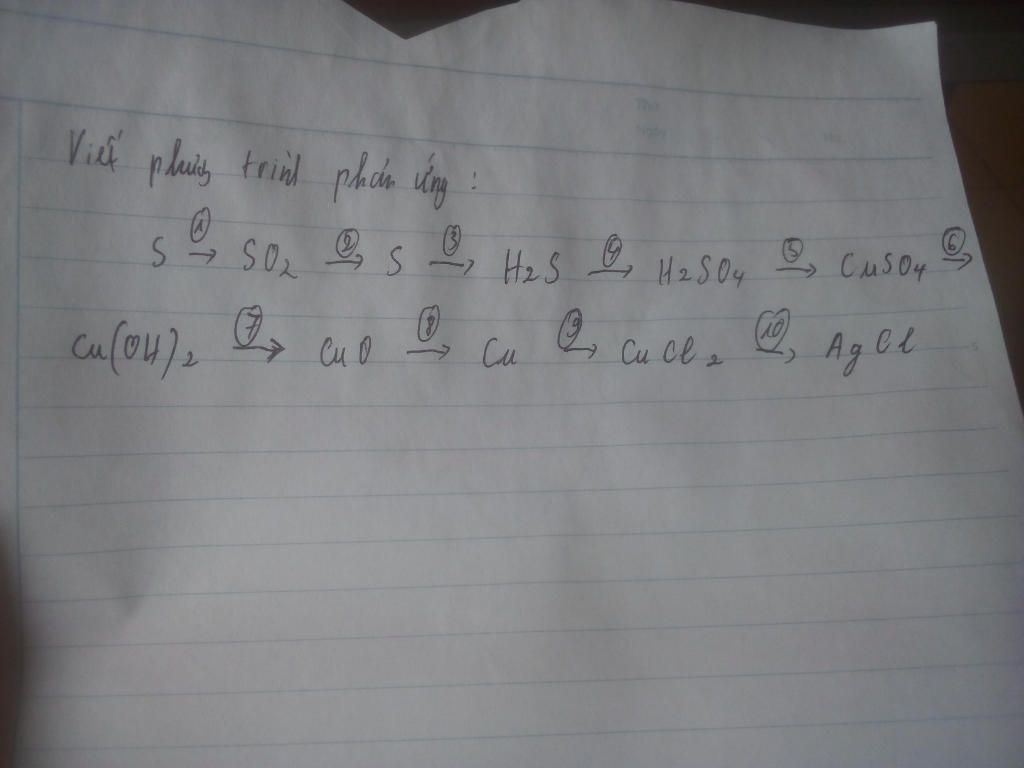 Viết phương trình phản ứng :
S ①→ SO2 ②→ S ③→ H2S ④→ H2SO4 ⑤→ CuSO4 ⑥→
Cu(OH)2 ⑦→ CuO ⑧→ Cu ⑨→ CuCl2 ⑩→ AgCl